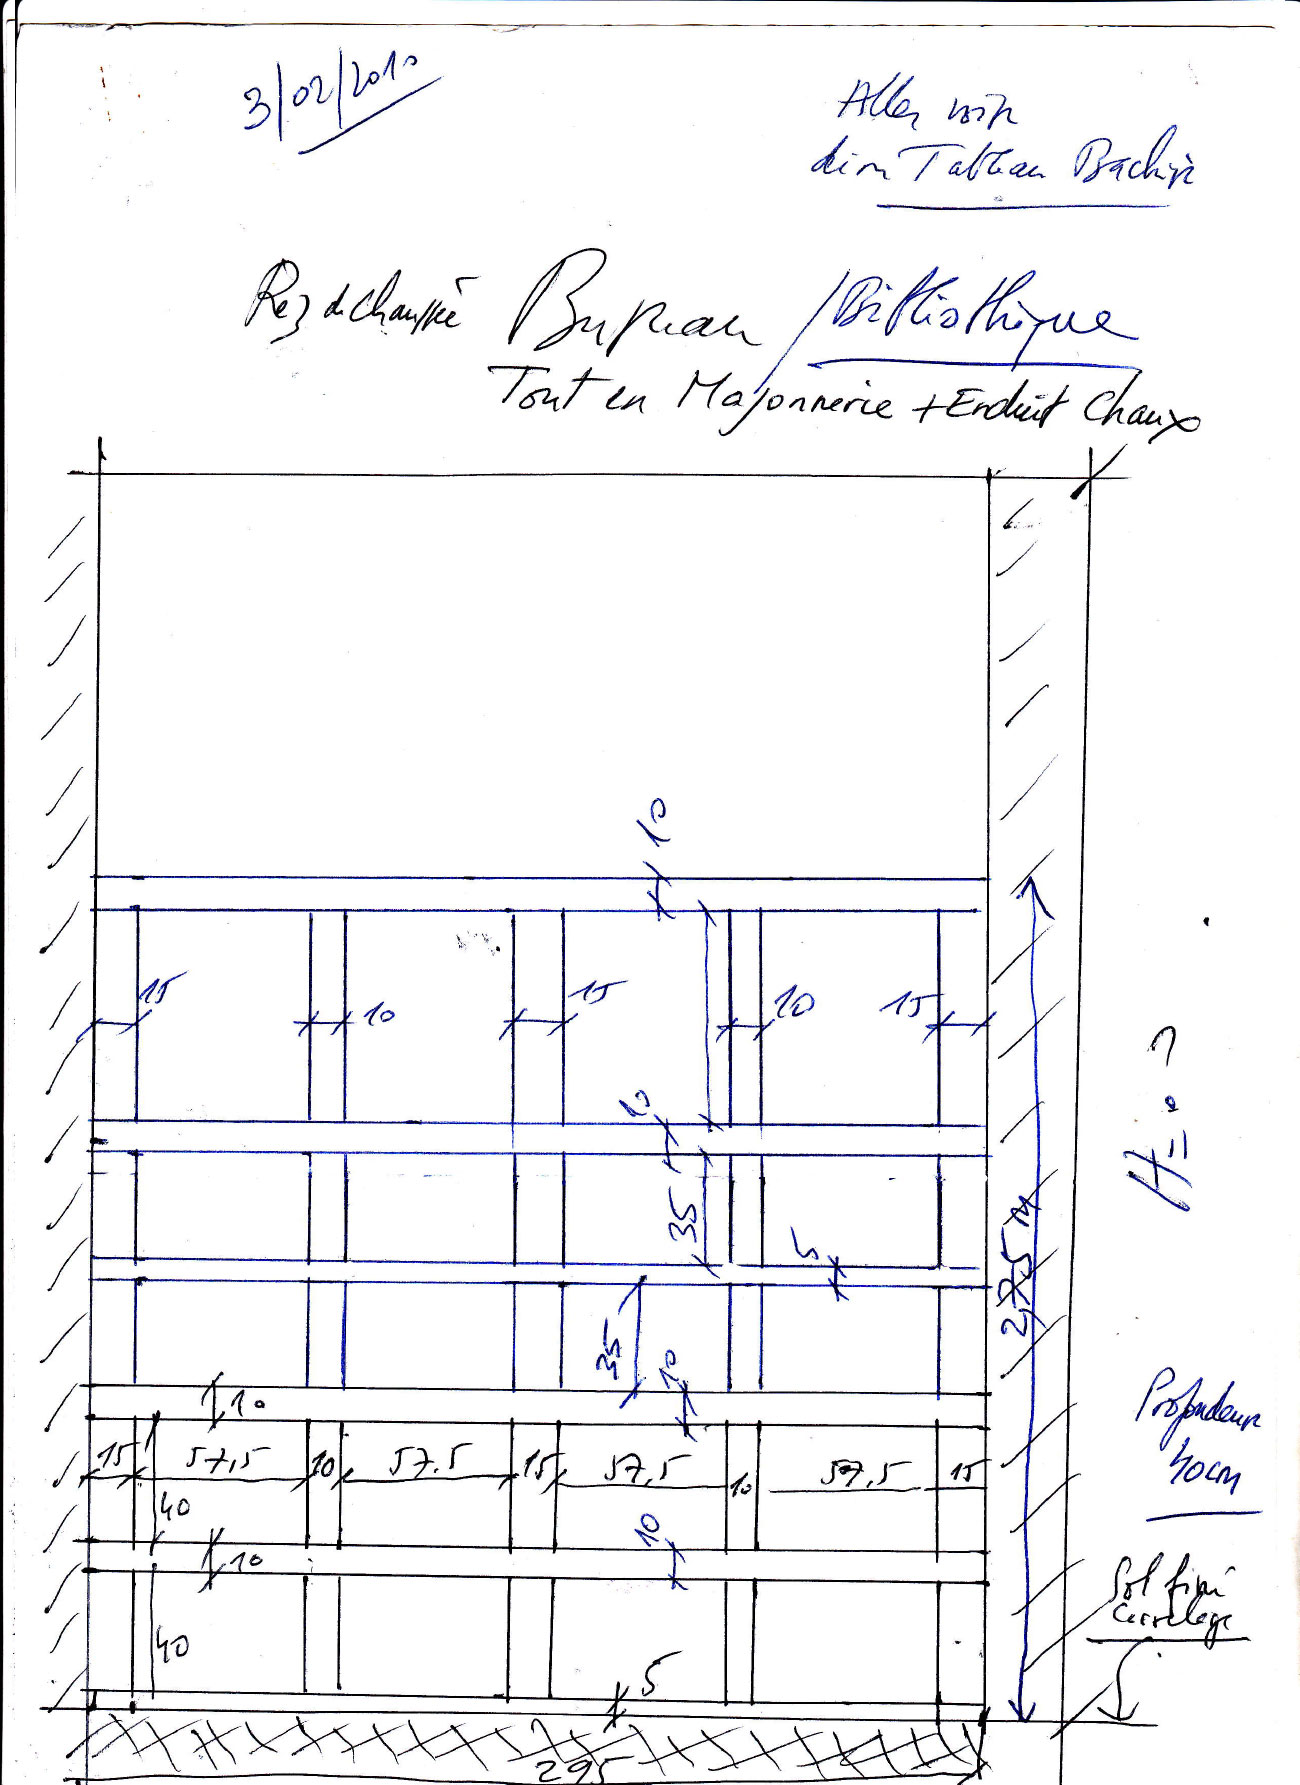 3/02/2010
Aller voir
dim Tableau Bachir
Rez de chaussée Bureau /Bibliothèque
Tout en Maçonnerie + Enduit Chaux
10
15
10
15
10
15
10
35
5
35
10
10
15
57,5
10
57.5
15
57,5
10
57.5
15
40
10
10
40
5
295
2,75 M
H = ?
Profondeur
40cm
Sol fini
Carrelage